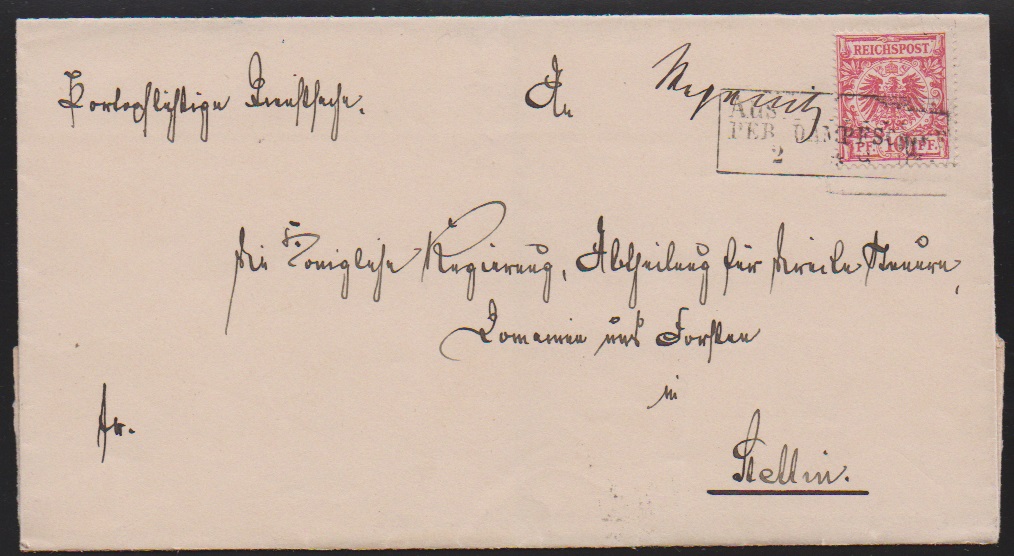 Portopflichtige Dienstsache.
An
REICHSPOST
PF. 10 PF.
Aus
PER DAMPFS
2
die Königliche Regierung, Abtheilung für direkte Steuern,
Domainen und Forsten
in
Stettin.
fr.